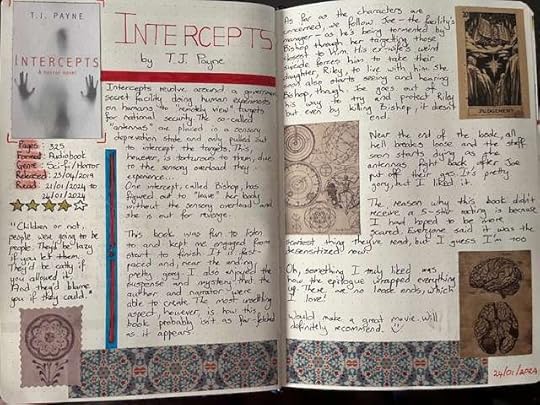 T.J. PAYNE
INTERCEPTS
A horror novel
INTERCEPTS
by T.J. Payne
Pages: 325
Format: Audiobook
Genre: Sci-fi/Horror
Released: 23/04/2019
Read: 21/01/2024 to
24/01/2024
"Children or not,
people were going to be
people. They'd be lazy
if you let them.
They'd be catty if
you allowed it.
And they'd blame
you if they could."
Intercepts revolve around a government
secret facility doing human experiments
on humans to remotely view targets
for national security. The so-called
"antennas" are placed in a sensory
deprivation state and only pulled out
to intercept the targets. This,
however, is torturous to them, due
to the sensory overload they
experience...
One intercept, called Bishop, has
figured out to "leave" her body
without the sensory overload and
she is out for revenge.
This book was fun to listen
to and kept me engaged from
start to finish. It is fast-
paced and, near the ending,
pretty gory. I also enjoyed the
suspense and mystery that the
author and narrator were
able to create. The most unsettling
aspect, however, is how this
book probably isn't as far-fetched
as it appears.
As far as the characters are
concerned, we follow Joe - the facility's
manager - as he's being tormented by
Bishop through her targeting those
close to him. His ex-wife's weird
suicide forces him to take their
daughter, Riley to live with him. She
then also starts seeing and hearing
Bishop, though Joe goes out of
his way to try and protect Riley
but even by killing Bishop, it doesn't
end.
JUDGEMENT
Near the end of the book, all
hell breaks loose and the staff
soon starts dying as the
antennas fight back after Joe
put off their gas. It's pretty
gory, but I liked it.
The reason why this book didn't
receive a 5-star rating is because
I had hoped to be more
scared. Everyone said it was the
scariest thing they've read, but I guess I'm too
desensitized now.
Oh, something I truly liked was
how the epilogue wrapped everything
up. There are no loose ends, which
I love!
Would make a great movie. Will
definitely recommend.
24/01/2024